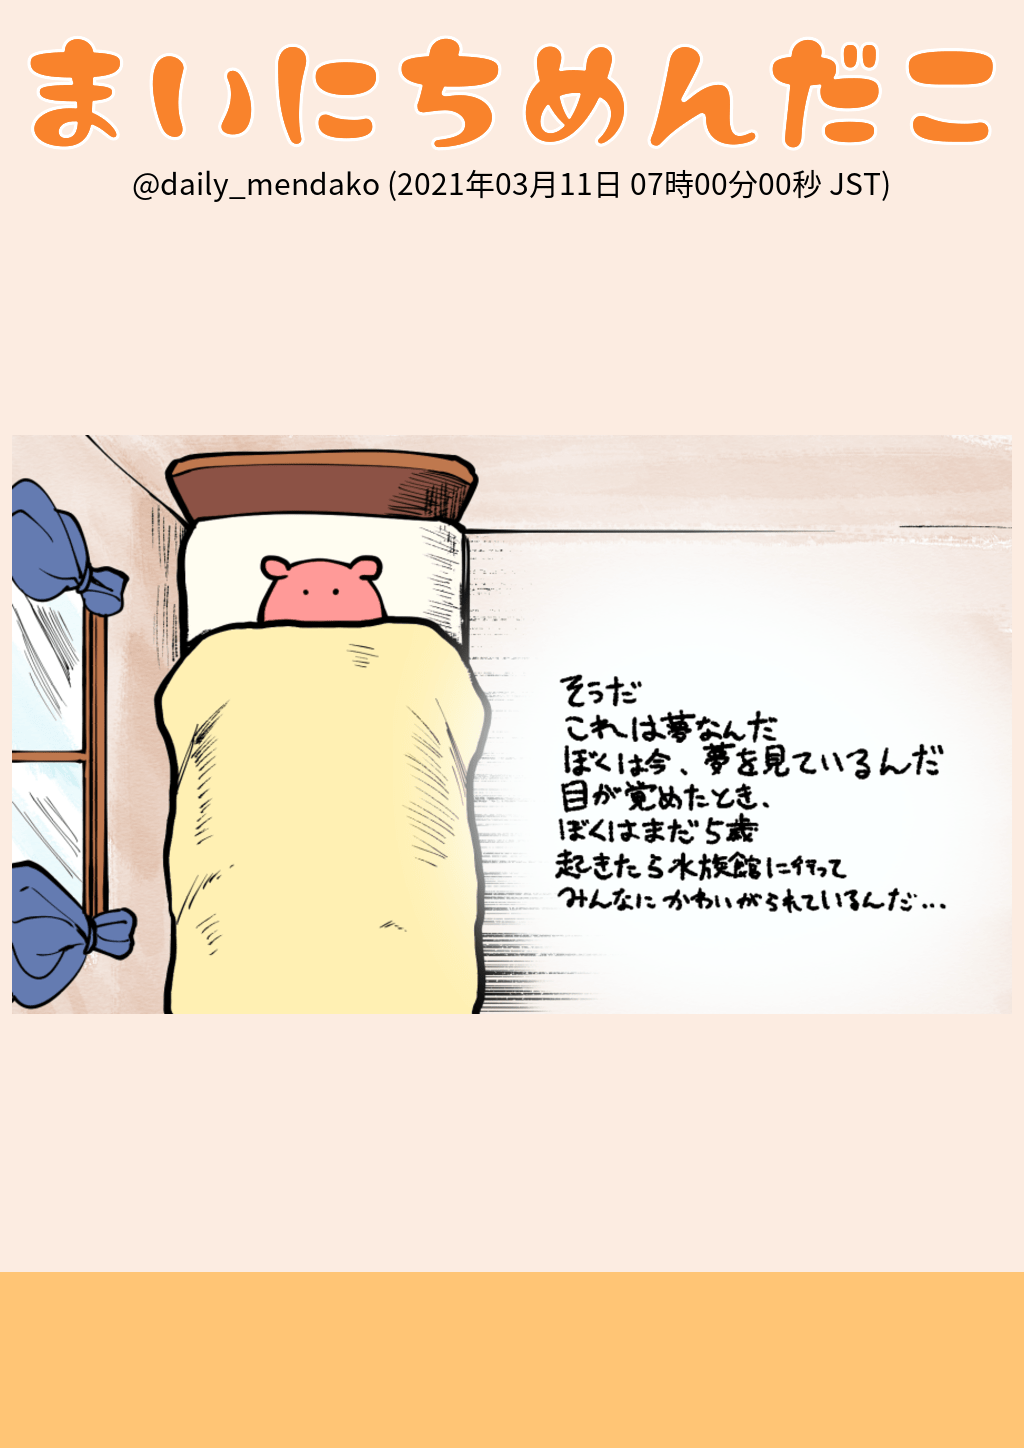 まいにちめんだこ
@daily_mendako (2021年03月11日 07時00分00秒 JST)
そうだ
これは夢なんだ
ぼくは今、夢を見ているんだ
目が覚めたとき、
ぼくはまだ5歳
起きたら水族館に行って
みんなにかわいがられているんだ…